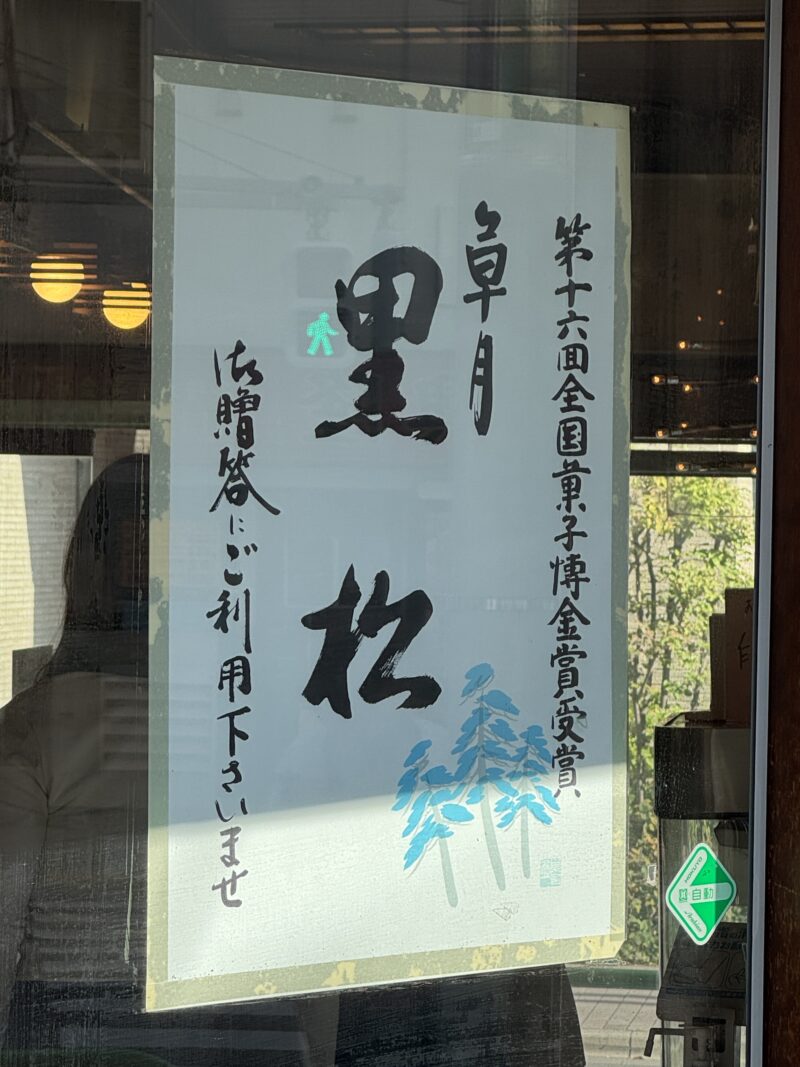 第十六回全国菓子博金賞受賞
草月
黒松
御贈答にご利用下さいませ
自動